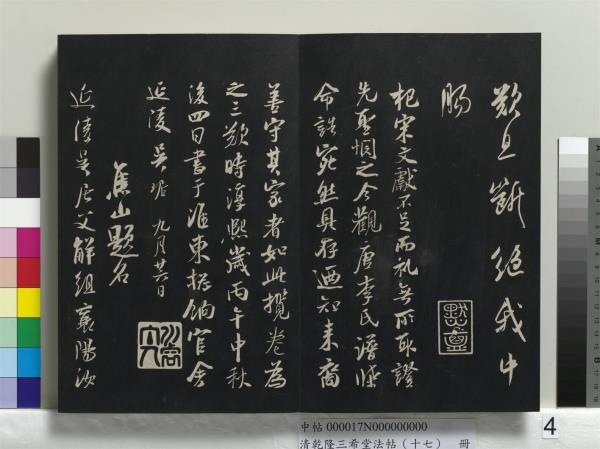 歎且斷絕我中
腸
杞宋文獻不足而禮無所取證
先聖憫之今觀唐李氏譜牒
命誥宛然具存迺知來裔
善守其家者如此攬卷為
之三歎時淳熙歲丙午中秋
後四日書于淮東撫餉官舍
延陵吳琚 九月廿六日
焦山題名
延陵吳居父解組襄陽汝
中帖 000017N000000000
清乾隆三希堂法帖（十七） 冊
4